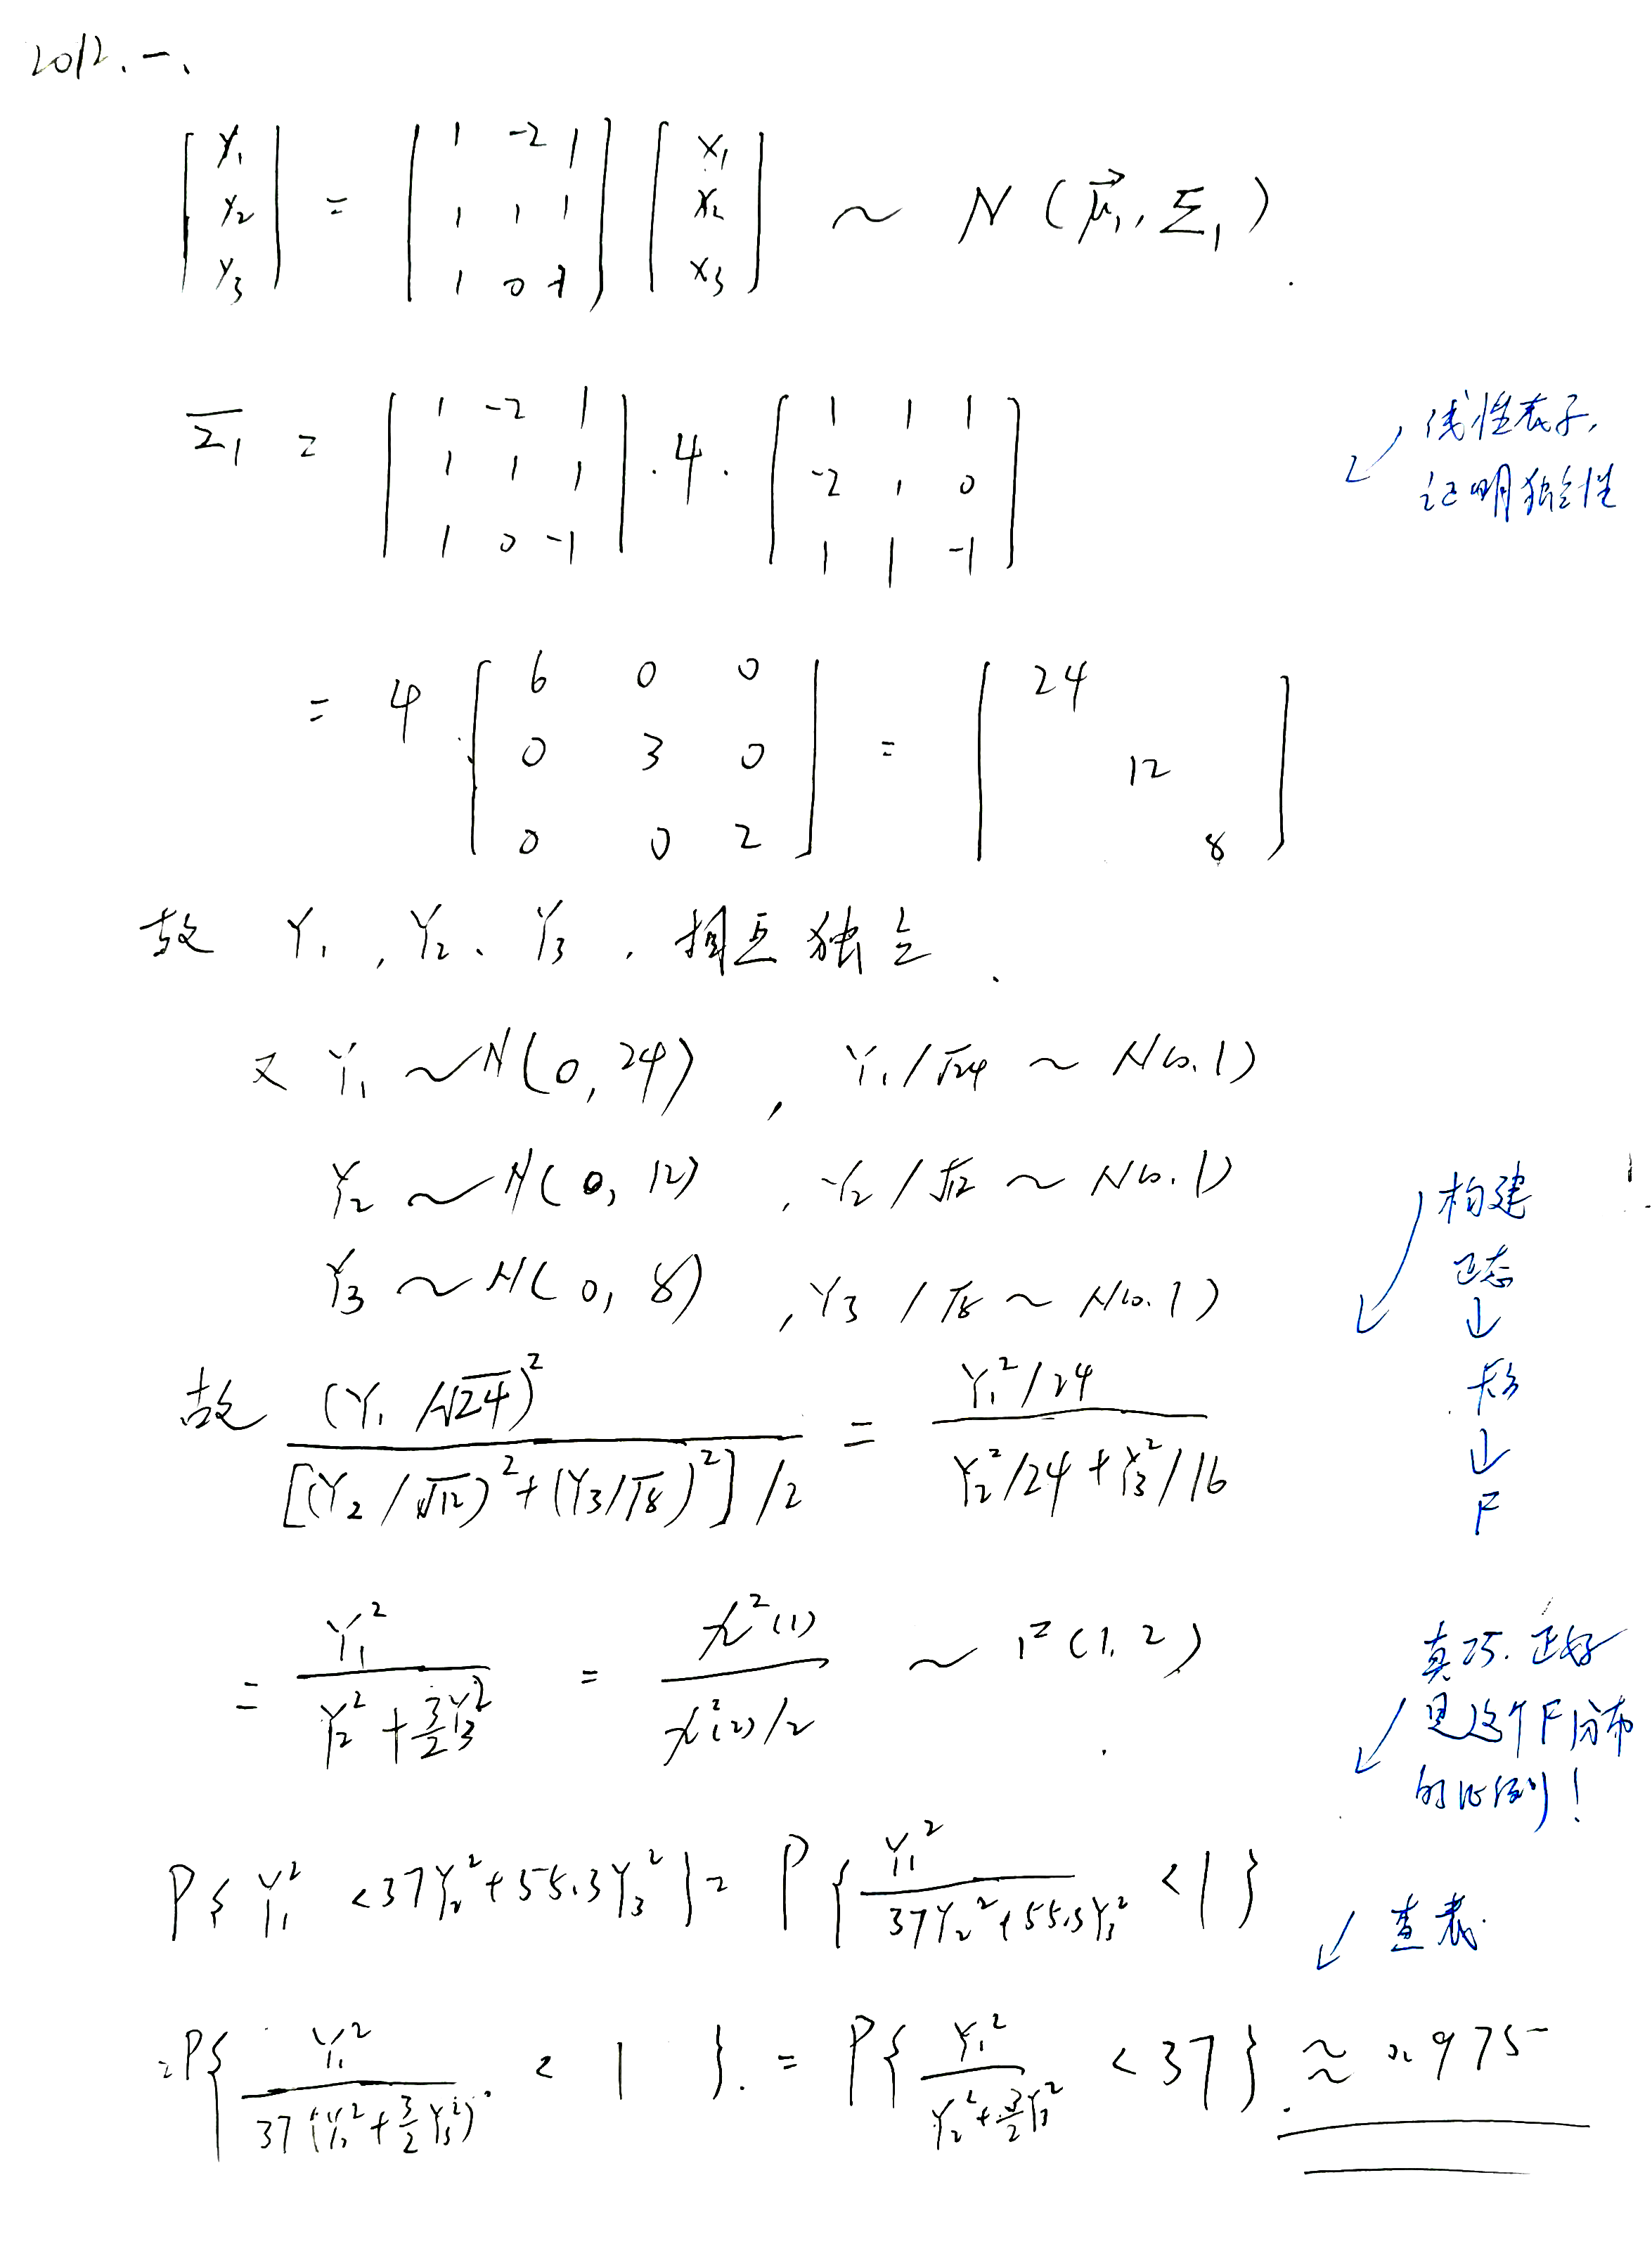 2012.一、
[Y₁ Y₂ Y₃] = [1 -2 1; 1 1 1; 1 0 -1] [X₁ X₂ X₃] ~ N(μ⃗₁, Σ₁).
Σ₁ = [1 -2 1; 1 1 1; 1 0 -1] · 4 · [1 1 1; -2 1 0; 1 1 -1]
线性表示,
证明独立性
= 4 [6 0 0; 0 3 0; 0 0 2] = [24 12 8]
故 Y₁, Y₂、Y₃, 相互独立.
又 Y₁ ~ N(0, 24), Y₁/√24 ~ N(0.1)
Y₂ ~ N(0, 12), Y₂/√12 ~ N(0.1)
Y₃ ~ N(0, 8), Y₃/√8 ~ N(0.1)
构建
正态
↓
卡方
↓
F
故 (Y₁/√24)² / {[(Y₂/√12)² + (Y₃/√8)²]/2} = (Y₁²/24) / (Y₂²/24 + Y₃²/16)
= Y₁² / (Y₂² + 3/2 Y₃²) = χ²(1) / (χ²(2)/2) ~ F(1, 2).
真巧. 正好
是这个F分布
的比例!
P{Y₁² < 37Y₂² + 55.3Y₃²} = P{Y₁² / (37Y₂² + 55.5Y₃²) < 1}
查表.
= P{Y₁² / 37(Y₂² + 3/2 Y₃²) < 1}. = P{Y₁² / (Y₂² + 3/2 Y₃²) < 37} ≈ 0.975